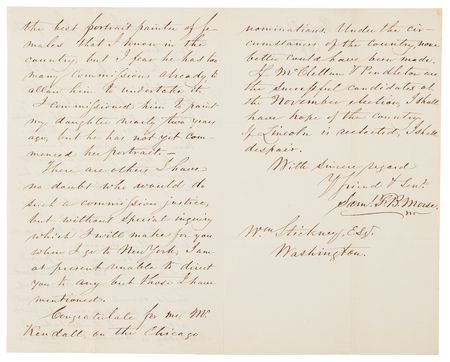 the best portrait painter of fe-
males that I know in the
country, but I fear he has too
many commissions already, to
allow him to undertake it.
I commissioned him to paint
my daughter nearly two years
ago, but he has not yet com-
menced her portrait —
There are others I have
no doubt who would do
such a commission justice,
but without special inquiry
which I will make for you
when I go to New York, I am
at present unable to direct
you to any but those I have
mentioned.
Congratulate for me, Mr.
Kendall, on the Chicago
nominations. Under the cir-
cumstances of the country, none
better could have been made.
If McClellan & Pendleton are
the successful candidates at
the November election, I shall
have hope of the country
if Lincoln is reelected, I shall
despair.
With sincere regard
Yr friend & Servt.
Saml. F. B. Morse.
Wm Stickney, Esqr.
Washington.